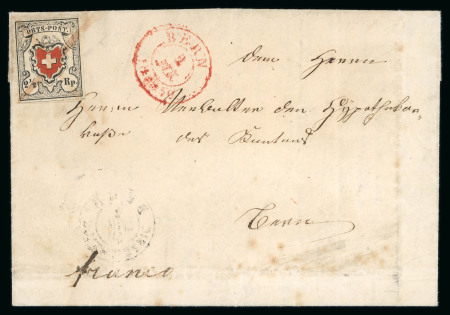 ORTS-POST.
2½ Rp.
BERN
2
dem Herrn
Herrn Verwalter der Hypothekar-
kasse des Kantons
Bern
franco